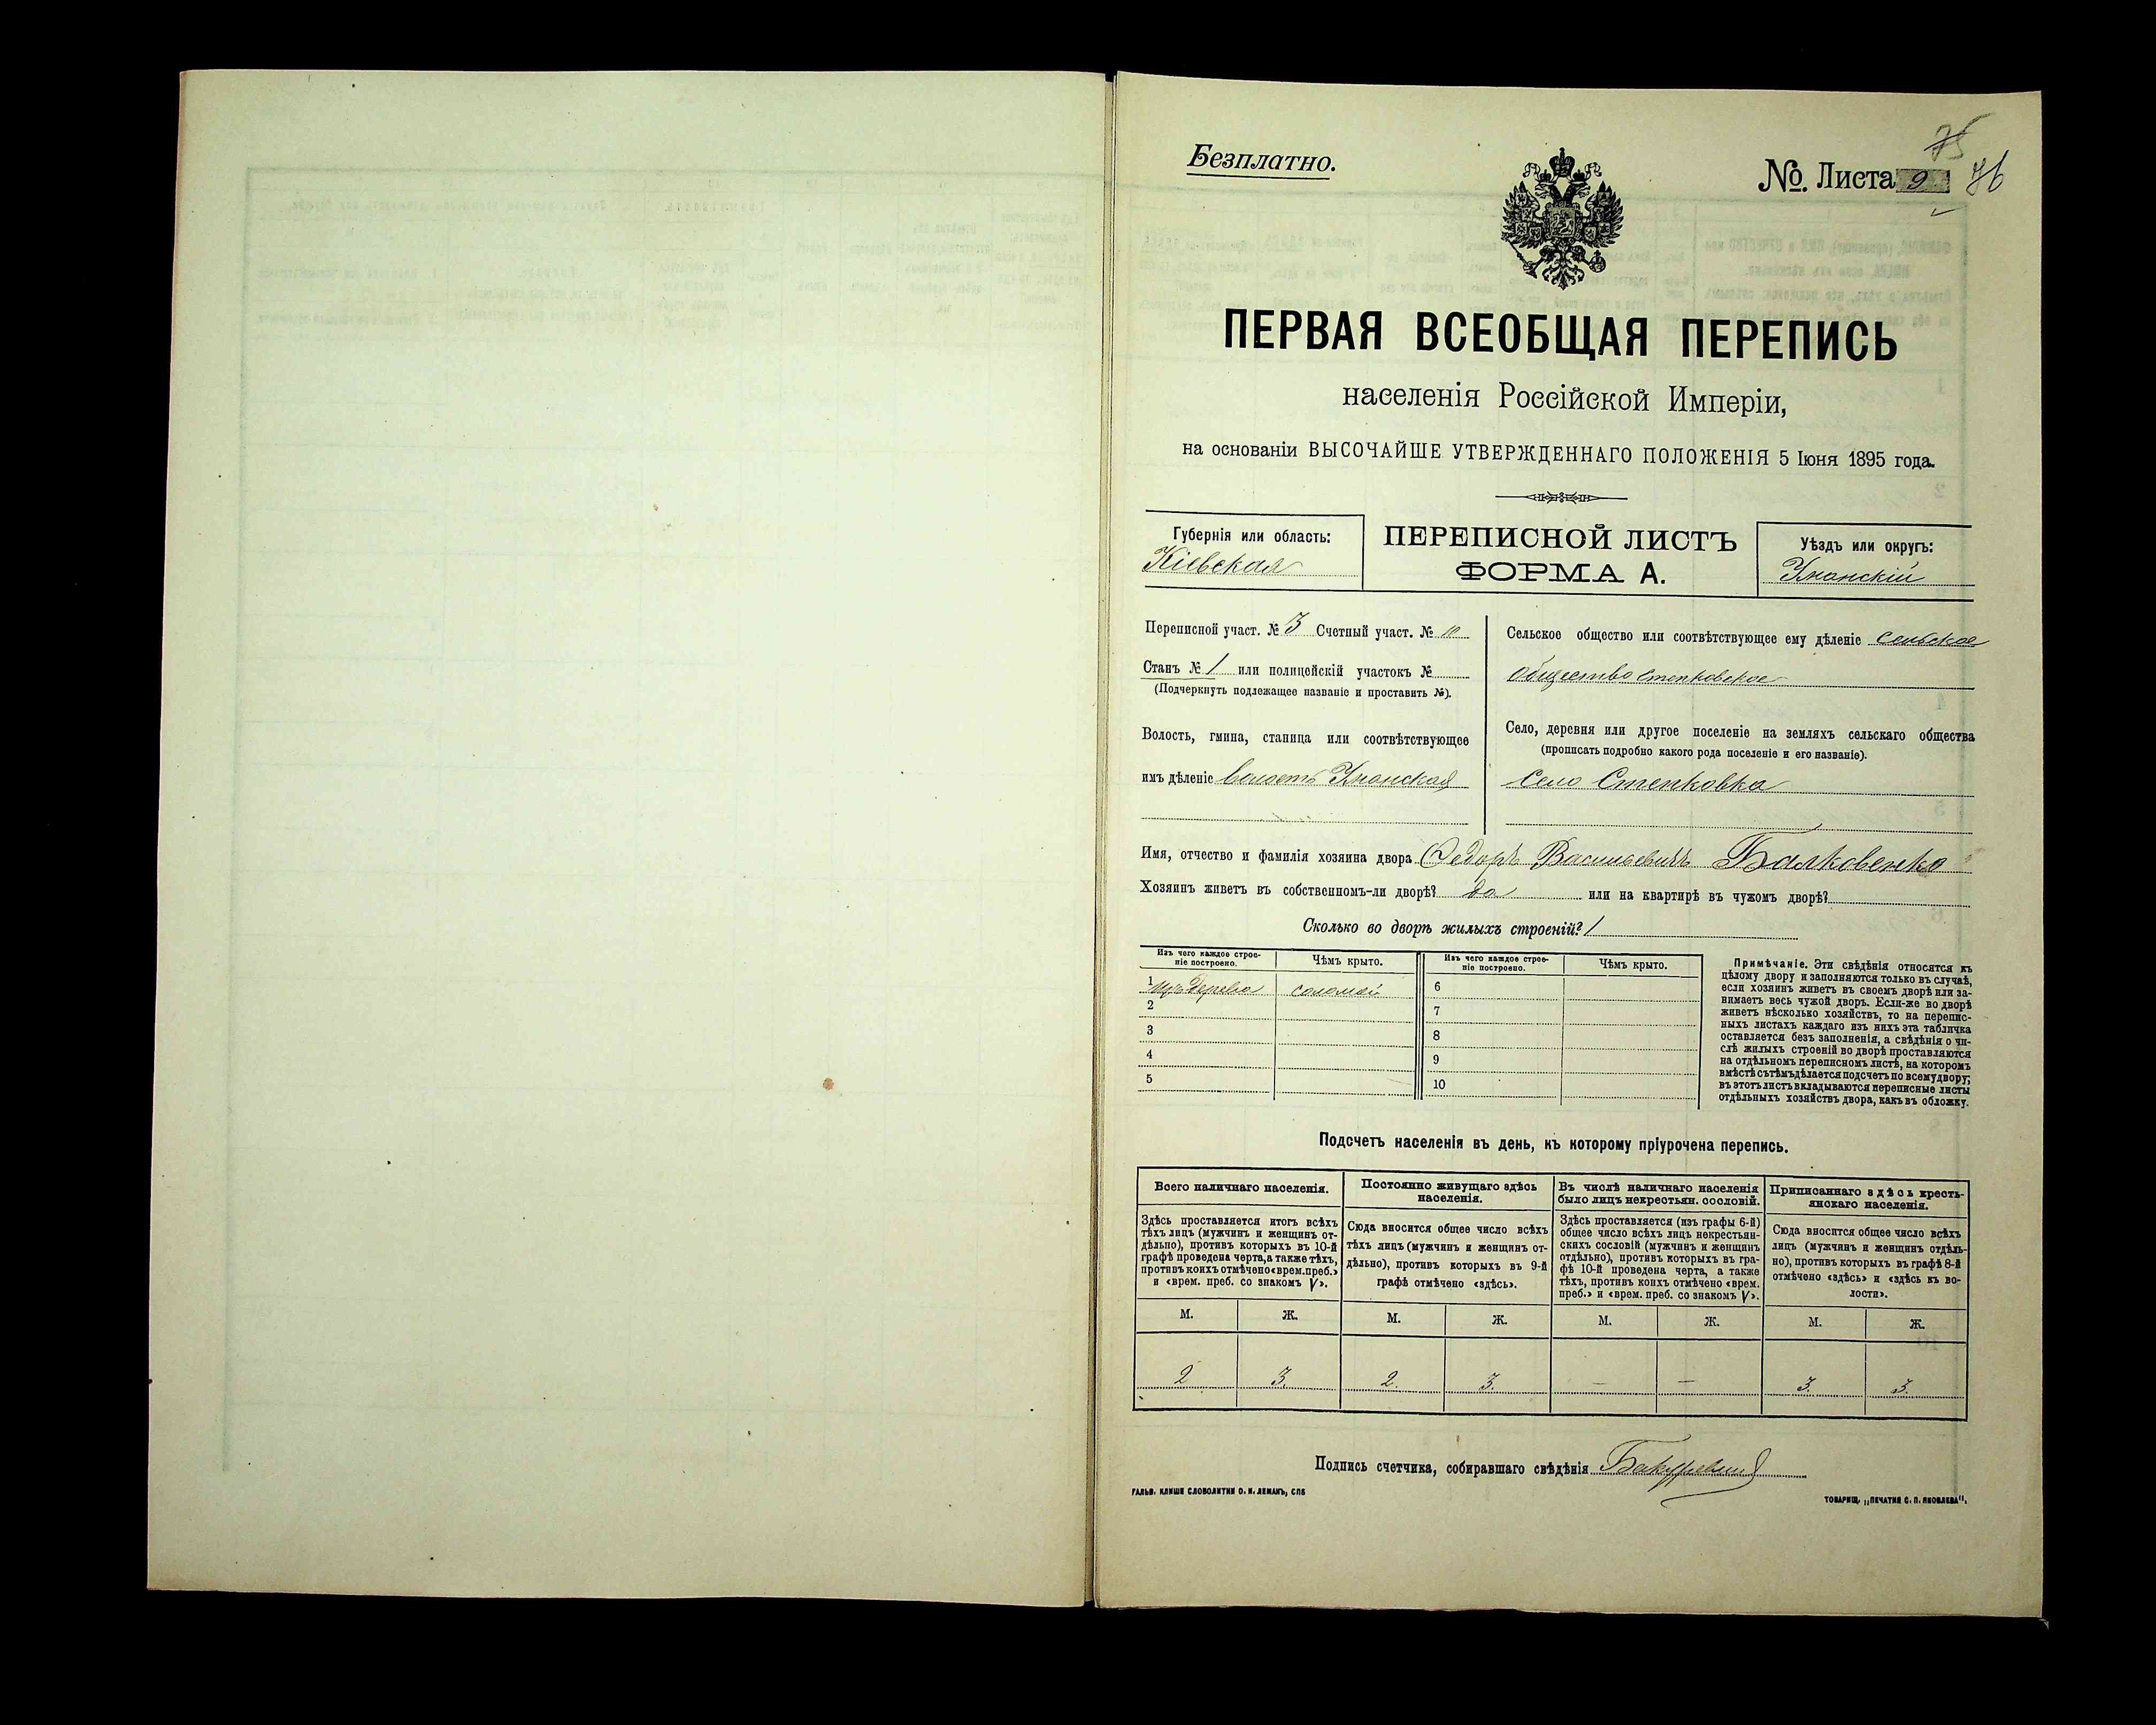 Безплатно.
75
№. Листа 9 76
ПЕРВАЯ ВСЕОБЩАЯ ПЕРЕПИСЬ
населенія Россійской Имперіи,
на основаніи ВЫСОЧАЙШЕ УТВЕРЖДЕННАГО ПОЛОЖЕНІЯ 5 Іюня 1895 года.
Губернія или область:
Кіевская
ПЕРЕПИСНОЙ ЛИСТЪ
ФОРМА А.
Уѣздъ или округъ:
Уманскій
Переписной участ. № 3 Счетный участ. № 10
Станъ № 1 или полицейскій участокъ №
(Подчеркнуть подлежащее названіе и проставить №).
Волость, гмина, станица или соотвѣтствующее
имъ дѣленіе волость Уманская
Сельское общество или соотвѣтствующее ему дѣленіе сельское
общество Степковское
Село, деревня или другое поселеніе на земляхъ сельскаго общества
(прописать подробно какого рода поселеніе и его названіе).
Село Степковка
Имя, отчество и фамилія хозяина двора Федоръ Васильевичъ Балковенко
Хозяинъ живетъ въ собственномъ-ли дворѣ? да или на квартирѣ въ чужомъ дворѣ?
Сколько во дворѣ жилыхъ строеній? 1
Изъ чего каждое строе-
ніе построено.
Чѣмъ крыто.
1 изъ дерева соломой
2
3
4
5
Изъ чего каждое строе-
ніе построено.
Чѣмъ крыто.
6
7
8
9
10
Примѣчаніе. Эти свѣдѣнія относятся къ
цѣлому двору и заполняются только въ случаѣ,
если хозяинъ живетъ въ своемъ дворѣ или за-
нимаетъ весь чужой дворъ. Если-же во дворѣ
живетъ нѣсколько хозяйствъ, то на перепис-
ныхъ листахъ каждаго изъ нихъ эта табличка
оставляется безъ заполненія, а свѣдѣнія о чи-
слѣ жилыхъ строеній во дворѣ проставляются
на отдѣльномъ переписномъ листѣ, на которомъ
вмѣстѣ съ тѣмъ дѣлается подсчетъ по всему двору;
въ этотъ листъ вкладываются переписные листы
отдѣльныхъ хозяйствъ двора, какъ въ обложку.
Подсчетъ населенія въ день, къ которому пріурочена перепись.
Всего наличнаго населенія.
Здѣсь проставляется итогъ всѣхъ
тѣхъ лицъ (мужчинъ и женщинъ от-
дѣльно), противъ которыхъ въ 10-й
графѣ проведена черта, а также тѣхъ,
противъ коихъ отмѣчено «врем. преб.»
и «врем. преб. со знакомъ V».
М. Ж.
2 3.
Постоянно живущаго здѣсь
населенія.
Сюда вносится общее число всѣхъ
тѣхъ лицъ (мужчинъ и женщинъ от-
дѣльно), противъ которыхъ въ 9-й
графѣ отмѣчено «здѣсь».
М. Ж.
2. 3.
Въ числѣ наличнаго населенія
было лицъ некрестьян. сословій.
Здѣсь проставляется (изъ графы 6-й)
общее число всѣхъ лицъ некрестьян-
скихъ сословій (мужчинъ и женщинъ
отдѣльно), противъ которыхъ въ гра-
фѣ 10-й проведена черта, а также
тѣхъ, противъ коихъ отмѣчено «врем.
преб.» и «врем. преб. со знакомъ V».
М. Ж.
— —
Приписаннаго здѣсь кресть-
янскаго населенія.
Сюда вносится общее число всѣхъ
лицъ (мужчинъ и женщинъ отдѣль-
но), противъ которыхъ въ графѣ 8-й
отмѣчено «здѣсь» и «здѣсь къ во-
лости».
М. Ж.
3. 3.
Подпись счетчика, собиравшаго свѣдѣнія
ГАЛЬВ. КЛИШЕ СЛОВОЛИТНИ О. И. ЛЕМАНЪ, СПБ
ТОВАРИЩ. „ПЕЧАТНЯ С. П. ЯКОВЛЕВА".